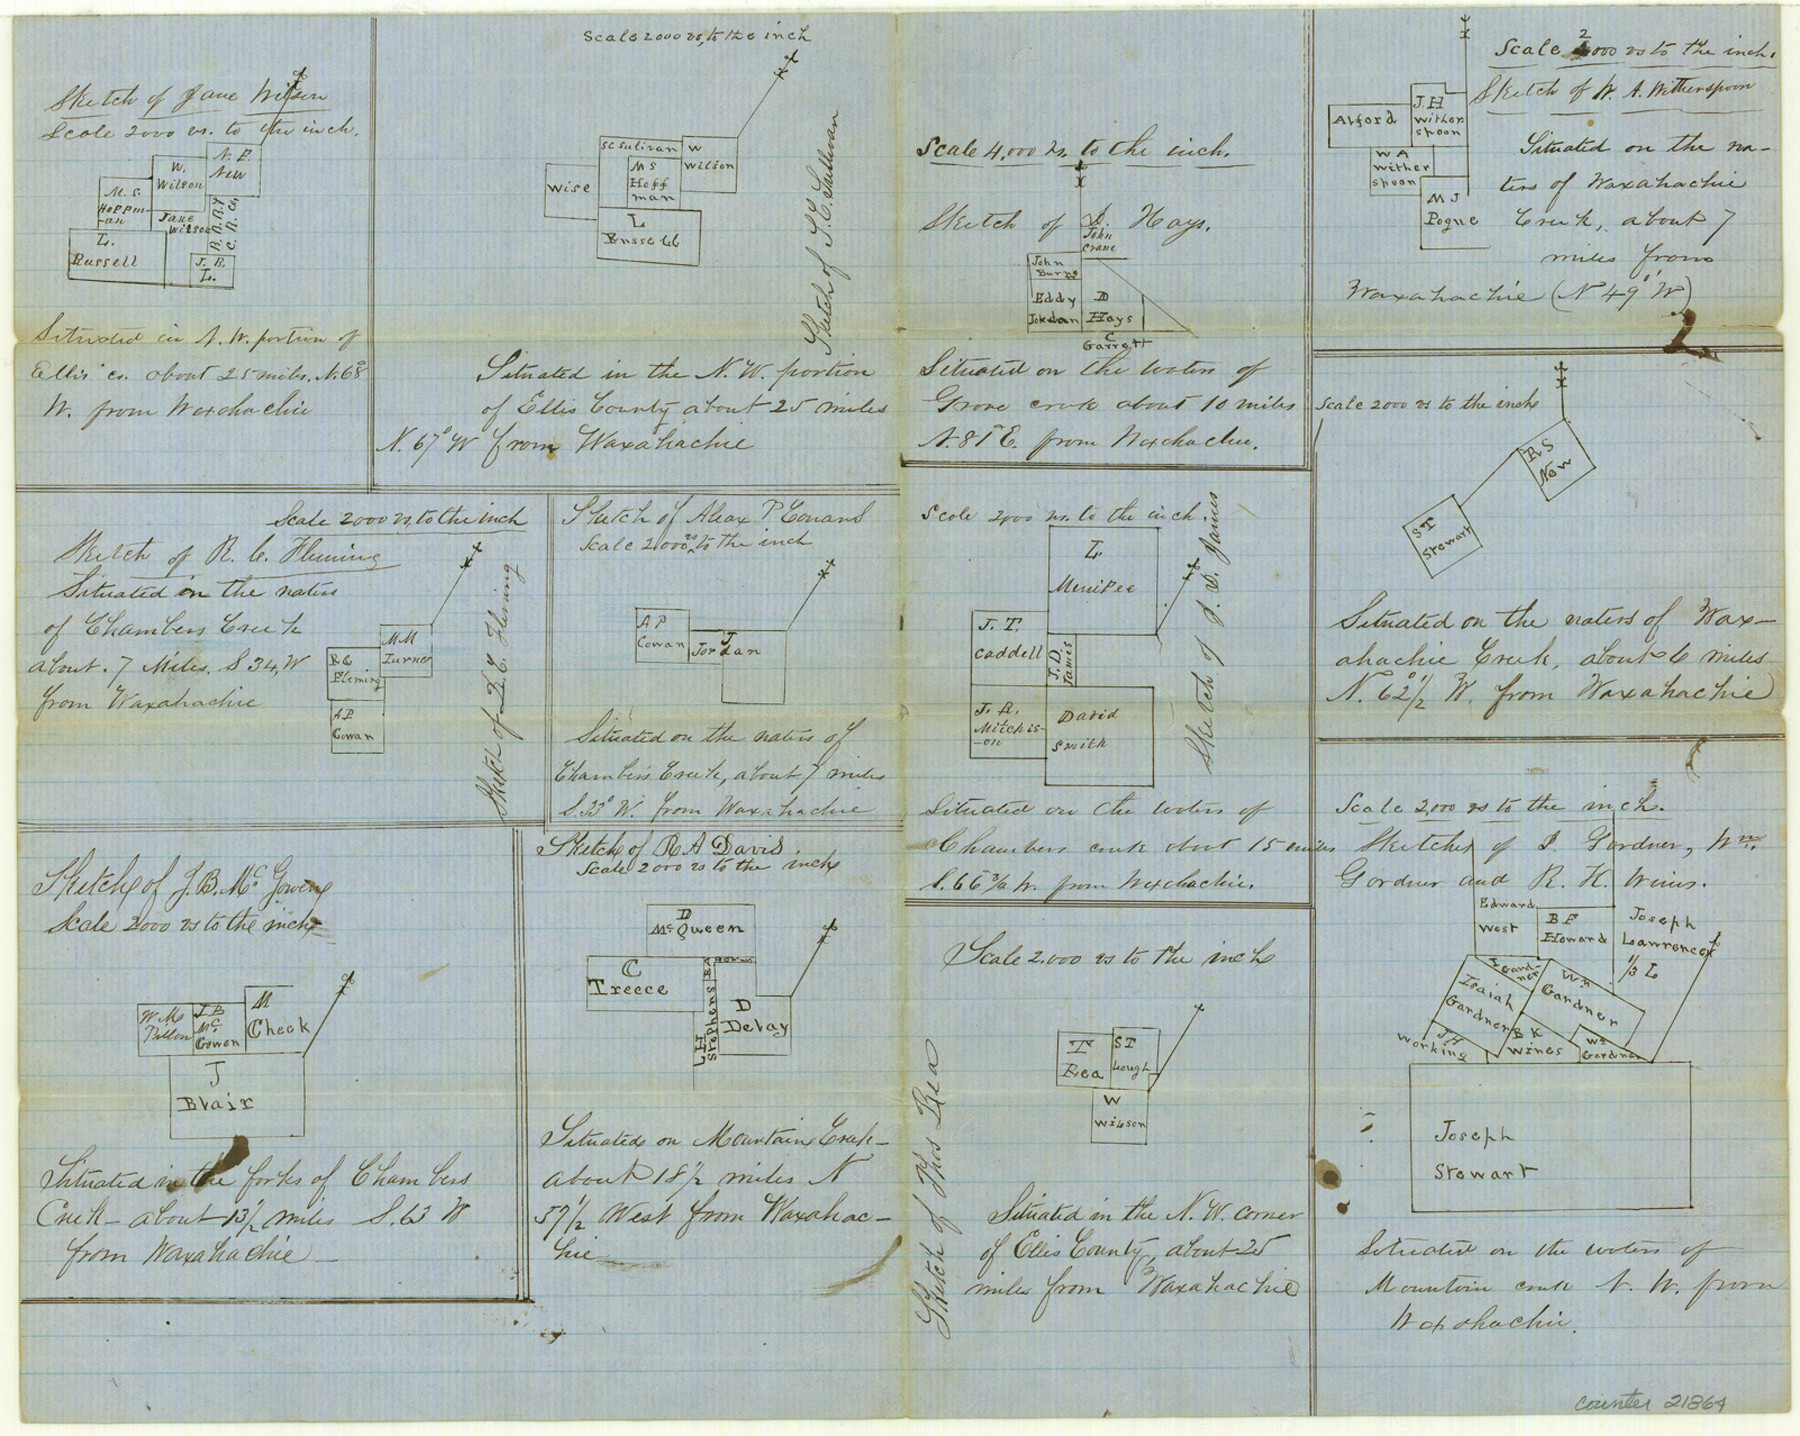 Sketch of Jane Wilson
Scale 2000 vs. to the inch.
N. E.
New
W.
Wilson
M. S.
Hoffm-
-an
Jane
Wilson
L.
Russell
B. B. B. &
C. R. Co.
J. B.
L.
Situated in N. W. portion of
Ellis co. about 25 miles. N. 68°
W. from Waxahachie
Scale 2000 vs, to the inch
SC Sulivan
W
Wilson
Wise
M S
Hoff
man
L
Russell
Sketch of S. C. Sullivan
Situated in the N. W. portion
of Ellis County about 25 miles
N. 67° W from Waxahachie
Scale 4,000 vs. to the inch.
Sketch of D. Hays.
John
Crane
John
Burns
Eddy
Jordan
D
Hays
C
Garrett
Situated on the waters of
Grove creek about 10 miles
N. 81° E. from Waxahachie.
Scale 2000 vs to the inch.
Sketch of W. A. Witherspoon
Alford
J. H
Wither
spoon
W A
Wither
spoon
M J
Pogue
Situated on the wa-
ters of Waxahachie
Creek, about 7
miles from
Waxahachie (N 49° W)
Scale 2000 vs to the inch
R S
New
S T
Stewart
Situated on the waters of Wax-
ahachie Creek, about 6 miles
N. 62°1/2 W. from Waxahachie
Scale 2000 vs, to the inch
Sketch of R. C. Fleming
Situated on the waters
of Chambers Creek
about. 7 Miles. S 34, W
from Waxahachie
M M
Turner
R C
Fleming
A P
Cowan
Sketch of R. C. Fleming
Sketch of Alex P Cowans
Scale 2000 vs to the inch
A P
Cowan
J
Jordan
Situated on the waters of
Chambers Creek, about 7 miles
S. 33° W. from Waxahachie
Scale 2000 vs. to the inch.
L.
Menifee
J. T.
Caddell
J. D.
James
J. R.
Mitchis-
-on
David
Smith
Sketch of J. D. James
Situated on the waters of
Chambers creek about 15 miles
S. 66 3/4 W. from Waxahachie.
Scale 2,000 vs to the inch.
Sketches of I. Gardner, Wm.
Gardner and R. K. Wins.
Edward
West
B F
Howard
Joseph
Lawrence
1/3 L
I Gard-
ner
Isaiah
Gardner
Wm
Gardner
J H
Working
B K
Wines
Wm
Gardner
Joseph
Stewart
Situated on the waters of
Mountain creek N. W. from
Waxahachie.
Sketch of J. B. McGowen
Scale 2000 vs to the inch
W M
J B
Mc
Gowen
M
Cheek
J
Blair
Situated in the forks of Chambers
Creek - about 13 1/2 miles S. 63 W
from Waxahachie
Sketch of R A Davis.
Scale 2000 vs to the inch
D
McQueen
C
Treece
L H
Stephens
D
Delay
Situated on Mountain Creek-
about 18 1/2 miles N
57 1/2 West from Waxahac-
hie
Scale 2.000 vs to the inch
T
Rea
S T
Lough
W
Wilson
Sketch of Thos Rea
Situated in the N. W. corner
of Ellis County, about 25
miles from Waxahachie
counter 21864